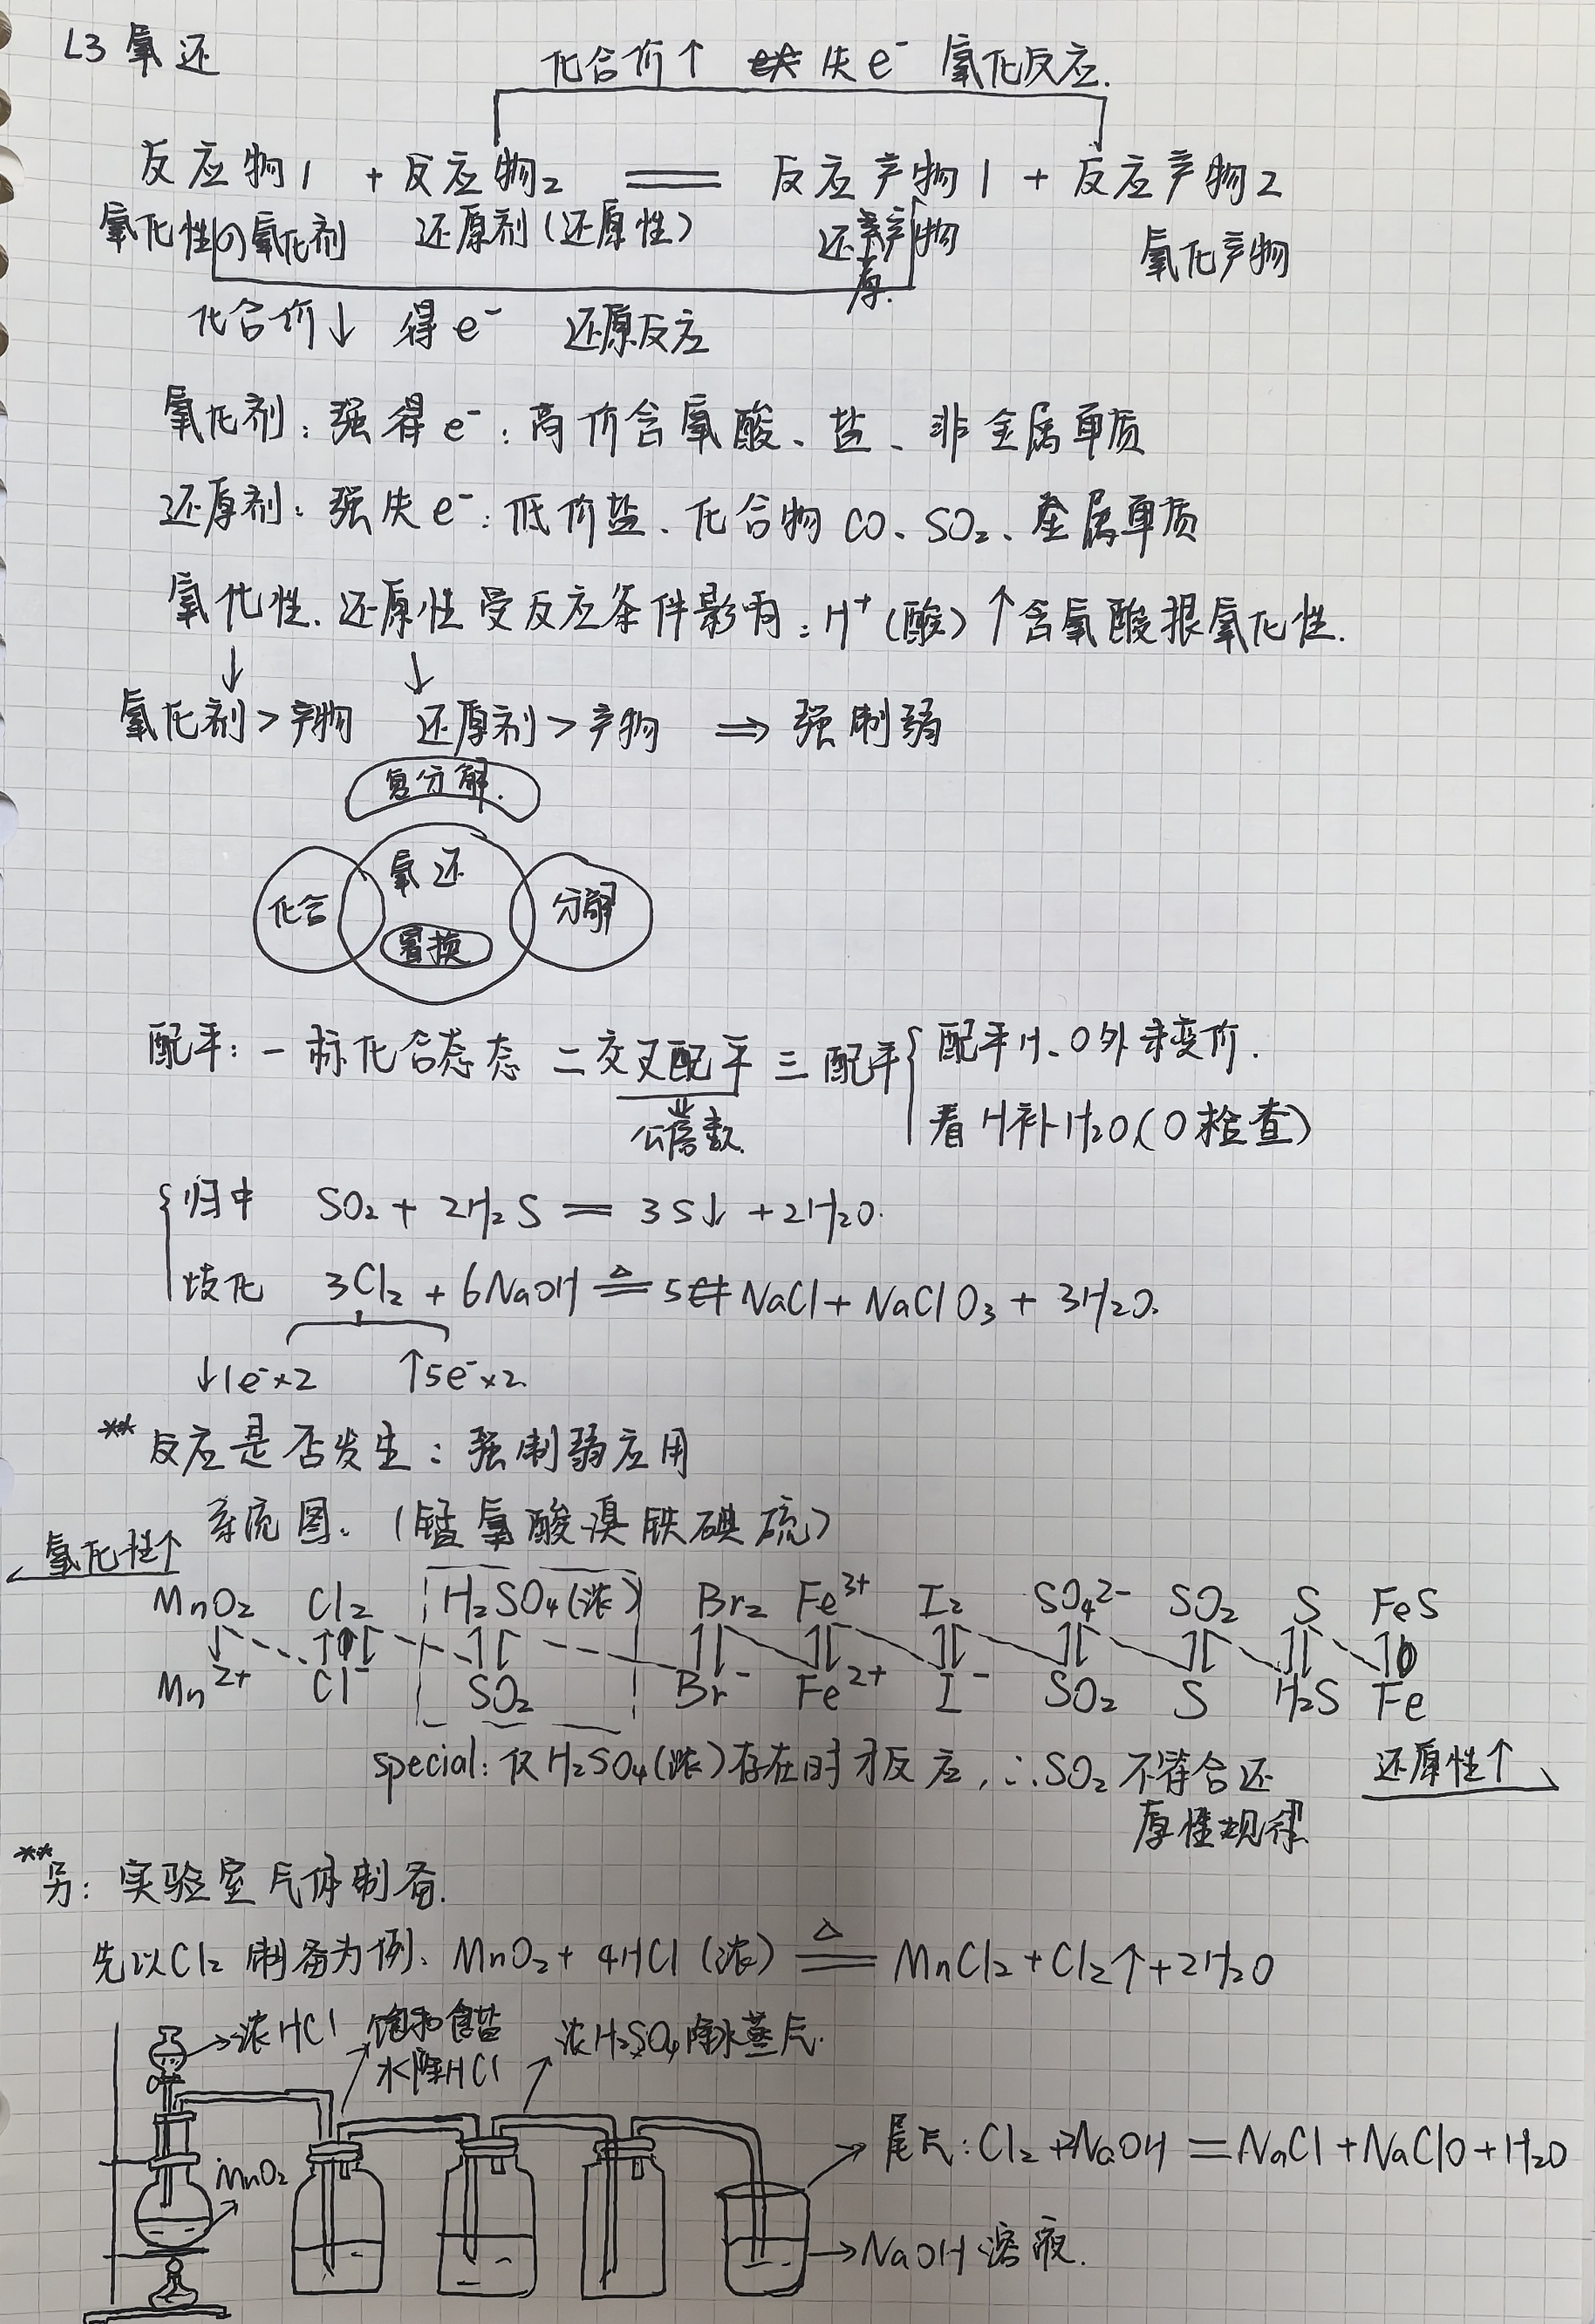 L3 氧还
化合价↑ 失e⁻ 氧化反应.
反应物1 + 反应物2 ══ 反应产物1 + 反应产物2
氧化性 氧化剂 还原剂(还原性) 还原产物 氧化产物
化合价↓ 得e⁻ 还原反应
氧化剂:强得e⁻:高价含氧酸、盐、非金属单质
还原剂:强失e⁻:低价盐、化合物 CO、SO₂、金属单质
氧化性.还原性受反应条件影响:H⁺(酸)↑含氧酸根氧化性.
↓ ↓
氧化剂>产物 还原剂>产物 ⇒ 强制弱
复分解.
氧还
化合 分解
置换
配平:一标化合态态 二交叉配平 三配平{配平H、O外未变价.
公倍数. 看H补H₂O(O检查)
{归中 SO₂ + 2H₂S = 3S↓ + 2H₂O.
歧化 3Cl₂ + 6NaOH ≜ 5NaCl + NaClO₃ + 3H₂O.
↓1e⁻×2 ↑5e⁻×2
** 反应是否发生:强制弱应用
(锰氯酸溴铁碘硫)
氧化性↑
MnO₂ Cl₂ H₂SO₄(浓) Br₂ Fe³⁺ I₂ SO₄²⁻ SO₂ S FeS
Mn²⁺ Cl⁻ SO₂ Br⁻ Fe²⁺ I⁻ SO₂ S H₂S Fe
special:仅H₂SO₄(浓)存在时才反应,∴SO₂不符合还
原性规律
还原性↑
** 另:实验室气体制备.
先以Cl₂制备为例、MnO₂ + 4HCl(浓) ≜ MnCl₂ + Cl₂↑ + 2H₂O
浓HCl 饱和食盐 浓H₂SO₄除水蒸气.
水除HCl
MnO₂
尾气:Cl₂ + 2NaOH = NaCl + NaClO + H₂O
NaOH溶液.